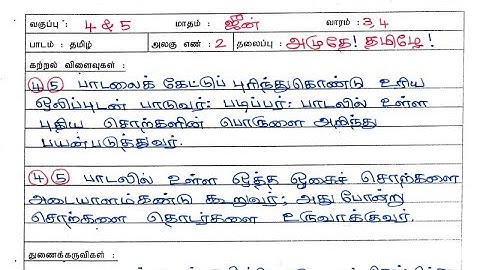 வகுப்பு : 4 & 5 மாதம் : ஜீன் வாரம் : 3,4
பாடம் : தமிழ் அலகு எண் : 2 தலைப்பு : அமுதே! தமிழே!
கற்றல் விளைவுகள் :
4 5 பாடலைக் கேட்டுப் புரிந்துகொண்டு உரிய
ஒலிப்புடன் பாடுவர்; படிப்பர்; பாடலில் உள்ள
புதிய சொற்களின் பொருளை அறிந்து
பயன்படுத்துவர்.
4 5 பாடலில் உள்ள ஒத்த ஓசைச் சொற்களை
அடையாளம்கண்டு கூறுவர்; அது போன்று
சொற்களை தொடர்களை உருவாக்குவர்.
துணைக்கருவிகள் :